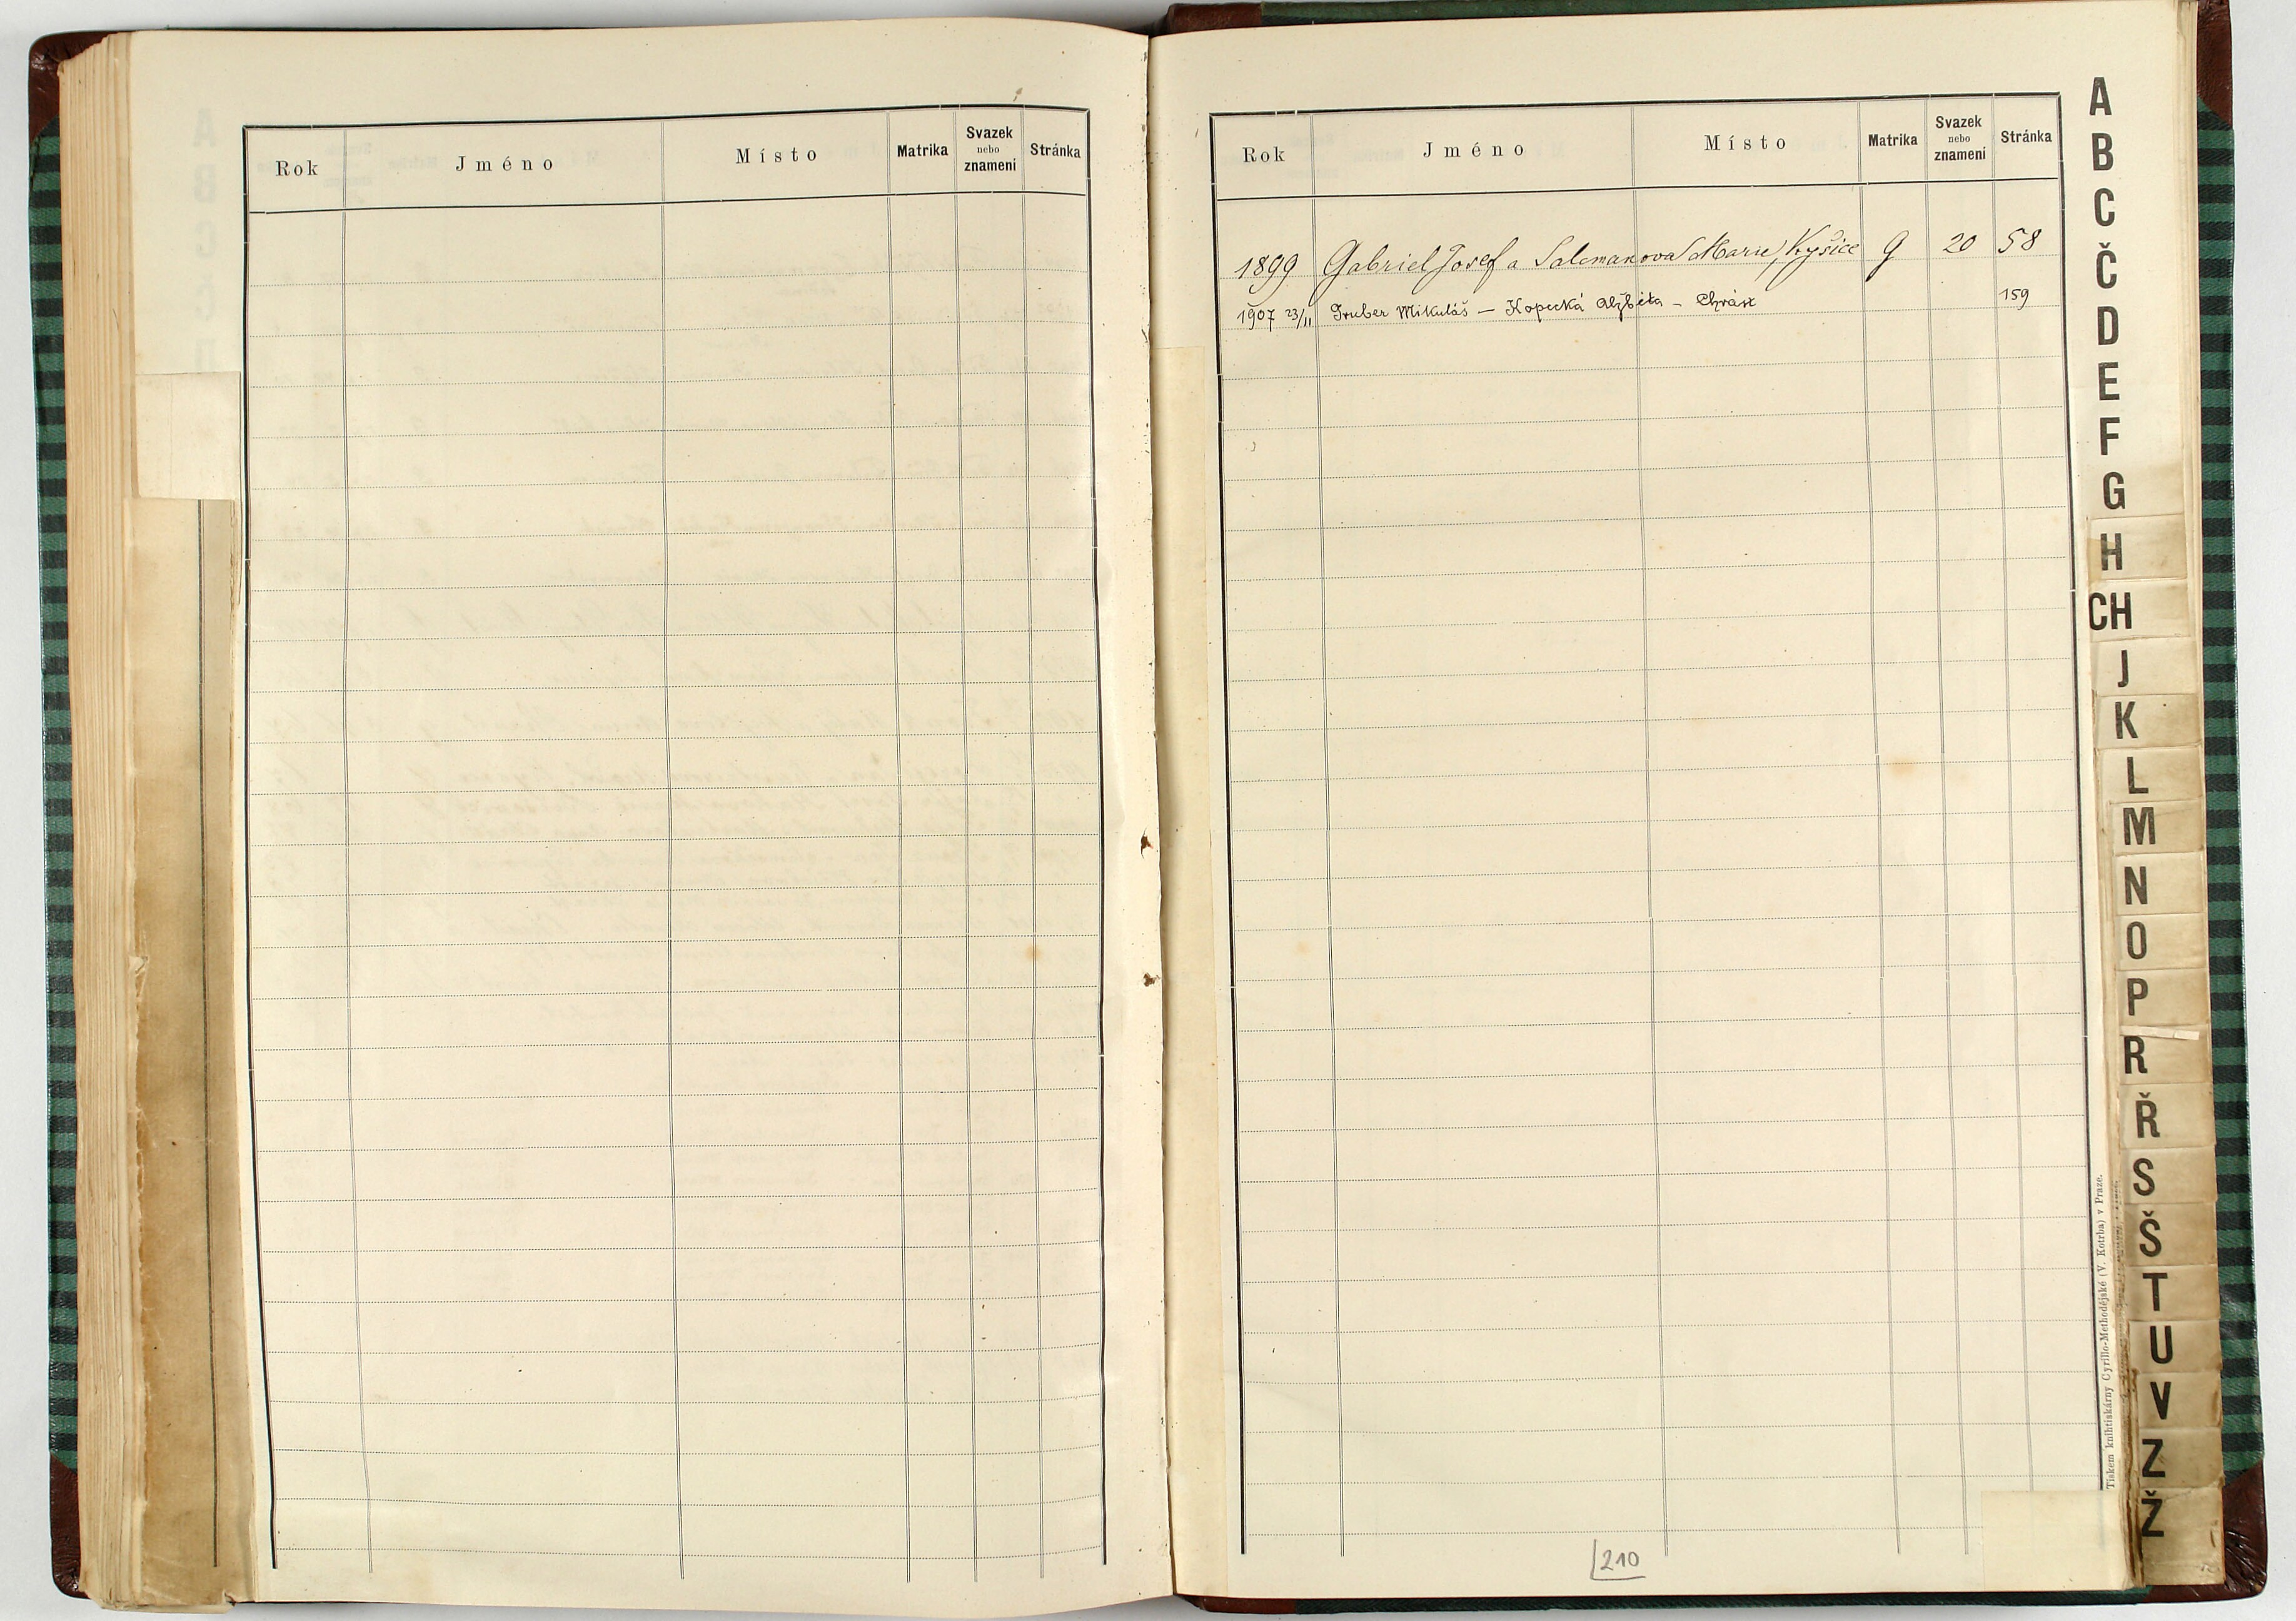 Rok Jméno Místo Matrika Svazek nebo znamení Stránka
Rok Jméno Místo Matrika Svazek nebo znamení Stránka
1899 Gabriel Josef a Salcmanová Marie, Kyšice 9 20 58
1907 23/11 Gruber Mikuláš — Kopecká Alžběta — Chrást 159
A
B
C
Č
D
E
F
G
H
CH
J
K
L
M
N
O
P
R
Ř
S
Š
T
U
V
Z
Ž
Tiskem knihtiskárny Cyrillo-Methodějské (V. Kotrba) v Praze.
210